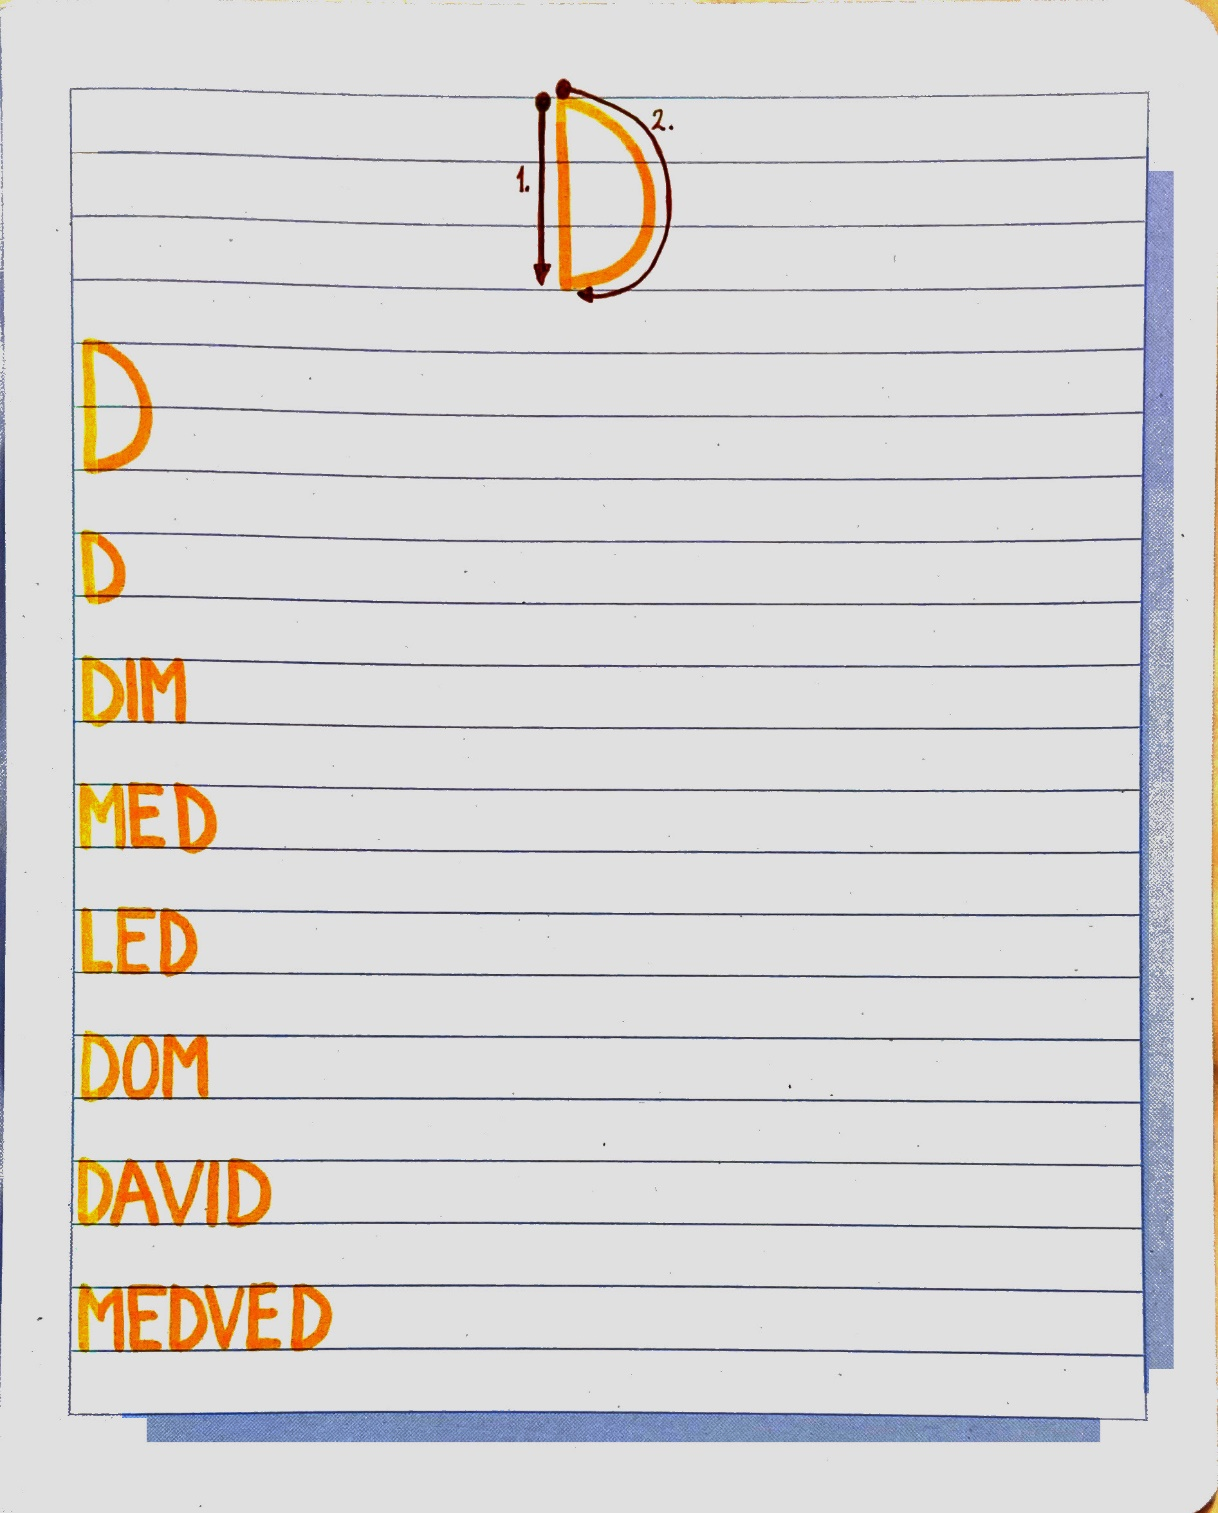 1. D 2.
D
D
DIM
MED
LED
DOM
DAVID
MEDVED